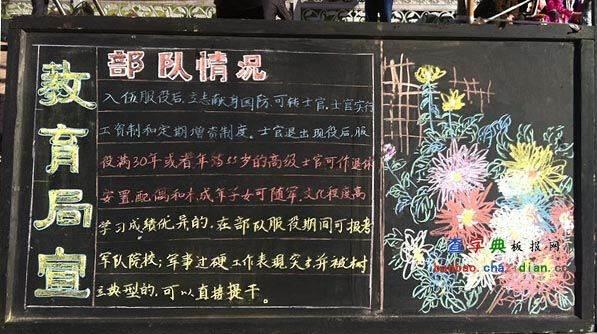 教育局宣
部队情况
入伍服役后,立志献身国防,可转士官,士官实行
工资制和定期增资制度。士官退出现役后,服
役满30年或者年满55岁的高级士官可作退休
安置,配偶和未成年子女可随军,文化程度高
学习成绩优异的,在部队服役期间可报考
军队院校;军事过硬工作表现突出并被树
立典型的,可以直接提干。
查字典板报网
banbao.chazidian.com